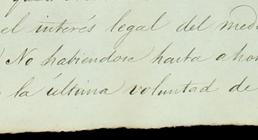 el interés legal del med
No habiendose hasta ahor
la última voluntad de